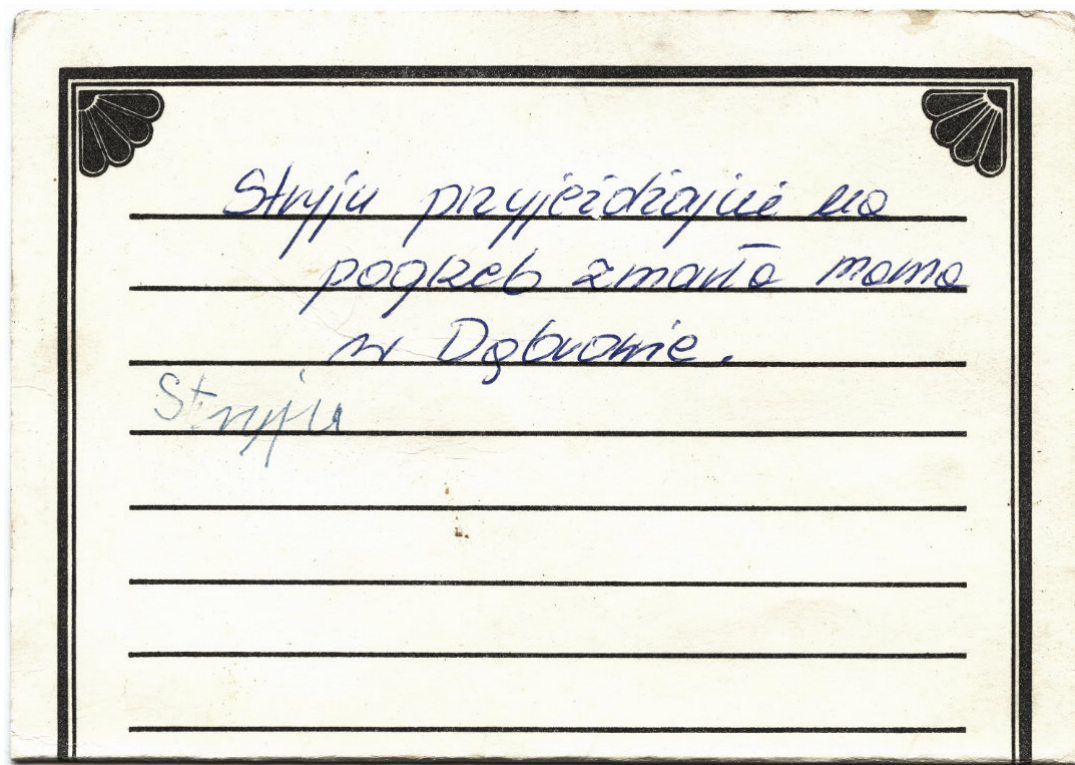 Stryju przyjeżdżajcie na
pogrzeb zmarła mama
w Dąbrowie.
Stryju